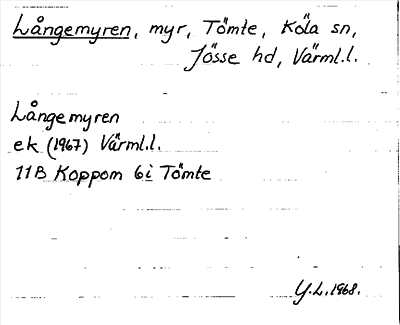 Långemyren, myr, Tömte, Köla sn,
Jösse hd, Värml.l.
Långemyren
ek (1967) Värml.l.
11B Koppom 6i Tömte
Y.L.1968.